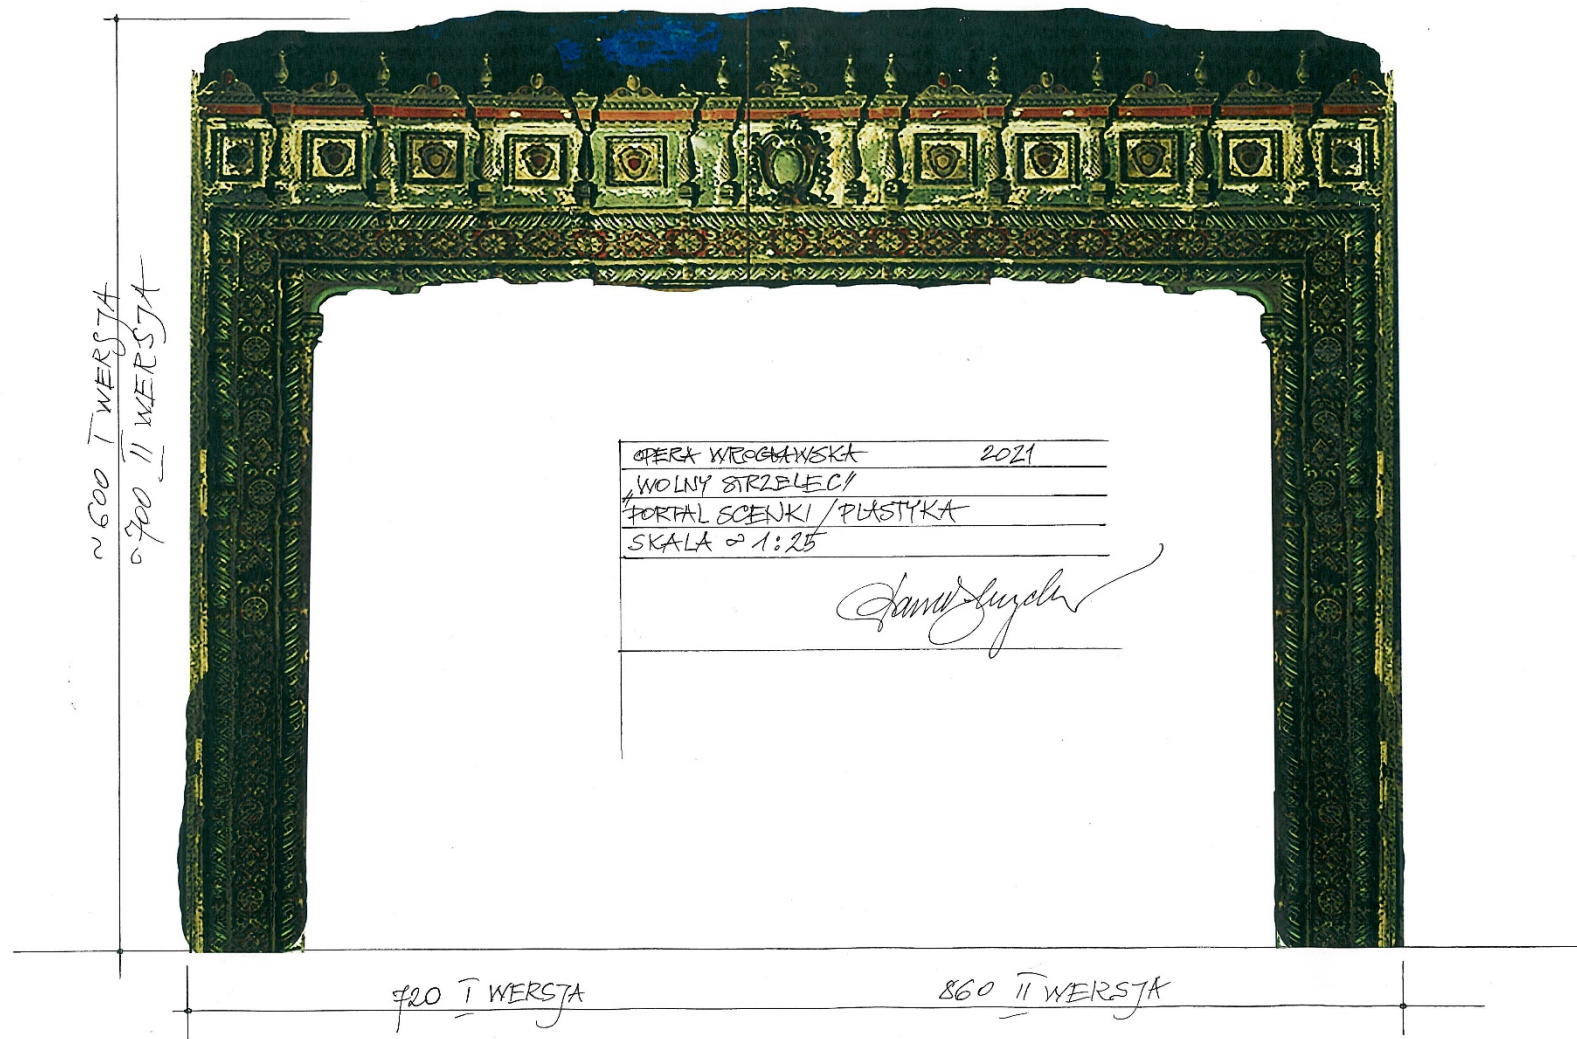 ~600 I WERSJA
~700 II WERSJA
OPERA WROCŁAWSKA 2021
„WOLNY STRZELEC”
PORTAL SCENKI / PLASTYKA
SKALA ~ 1:25
720 I WERSJA
860 II WERSJA